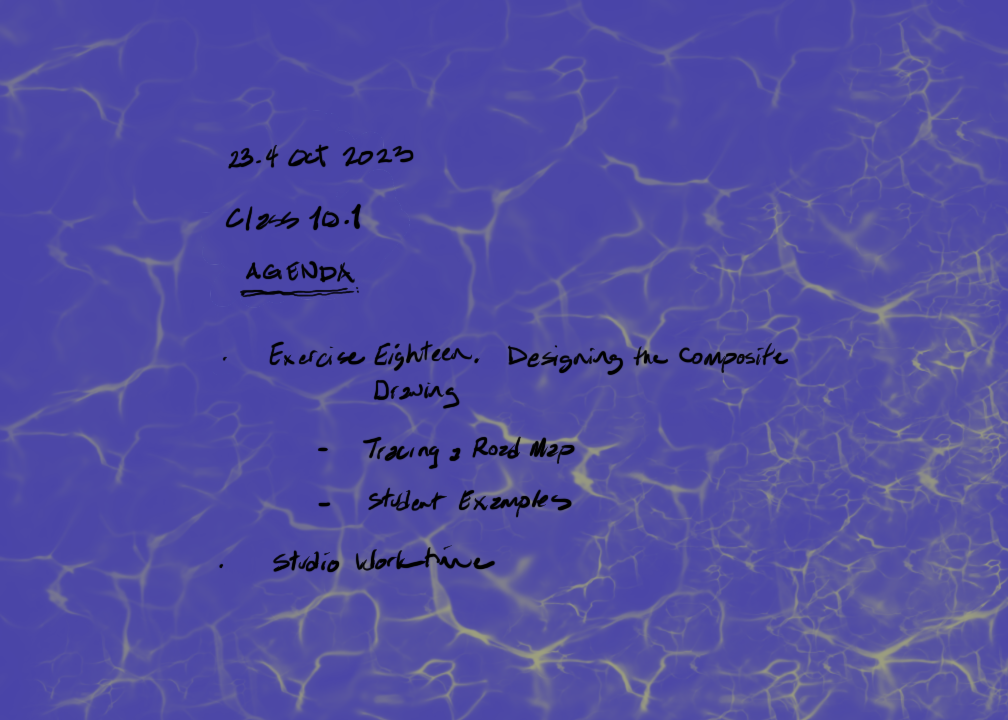 23.4 Oct 2023
Class 10.1
AGENDA
· Exercise Eighteen. Designing the Composite
Drawing
- Tracing a Road Map
- Student Examples
· Studio Worktime